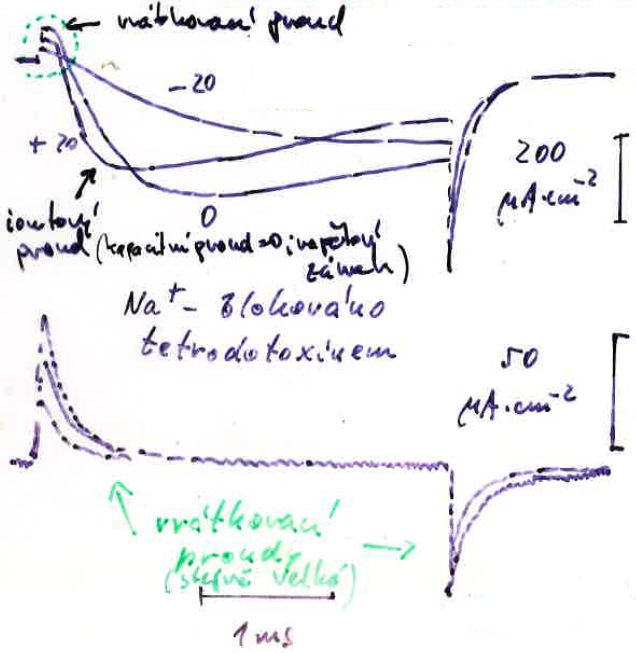 ← vrátkovací proud
-20
+20
0
200
μA·cm⁻²
iontový
proud (kapacitní proud=0, napěťový
zámek)
Na⁺- blokováno
tetrodotoxinem
50
μA·cm⁻²
vrátkovací
proudy
(stejně velké)
1 ms